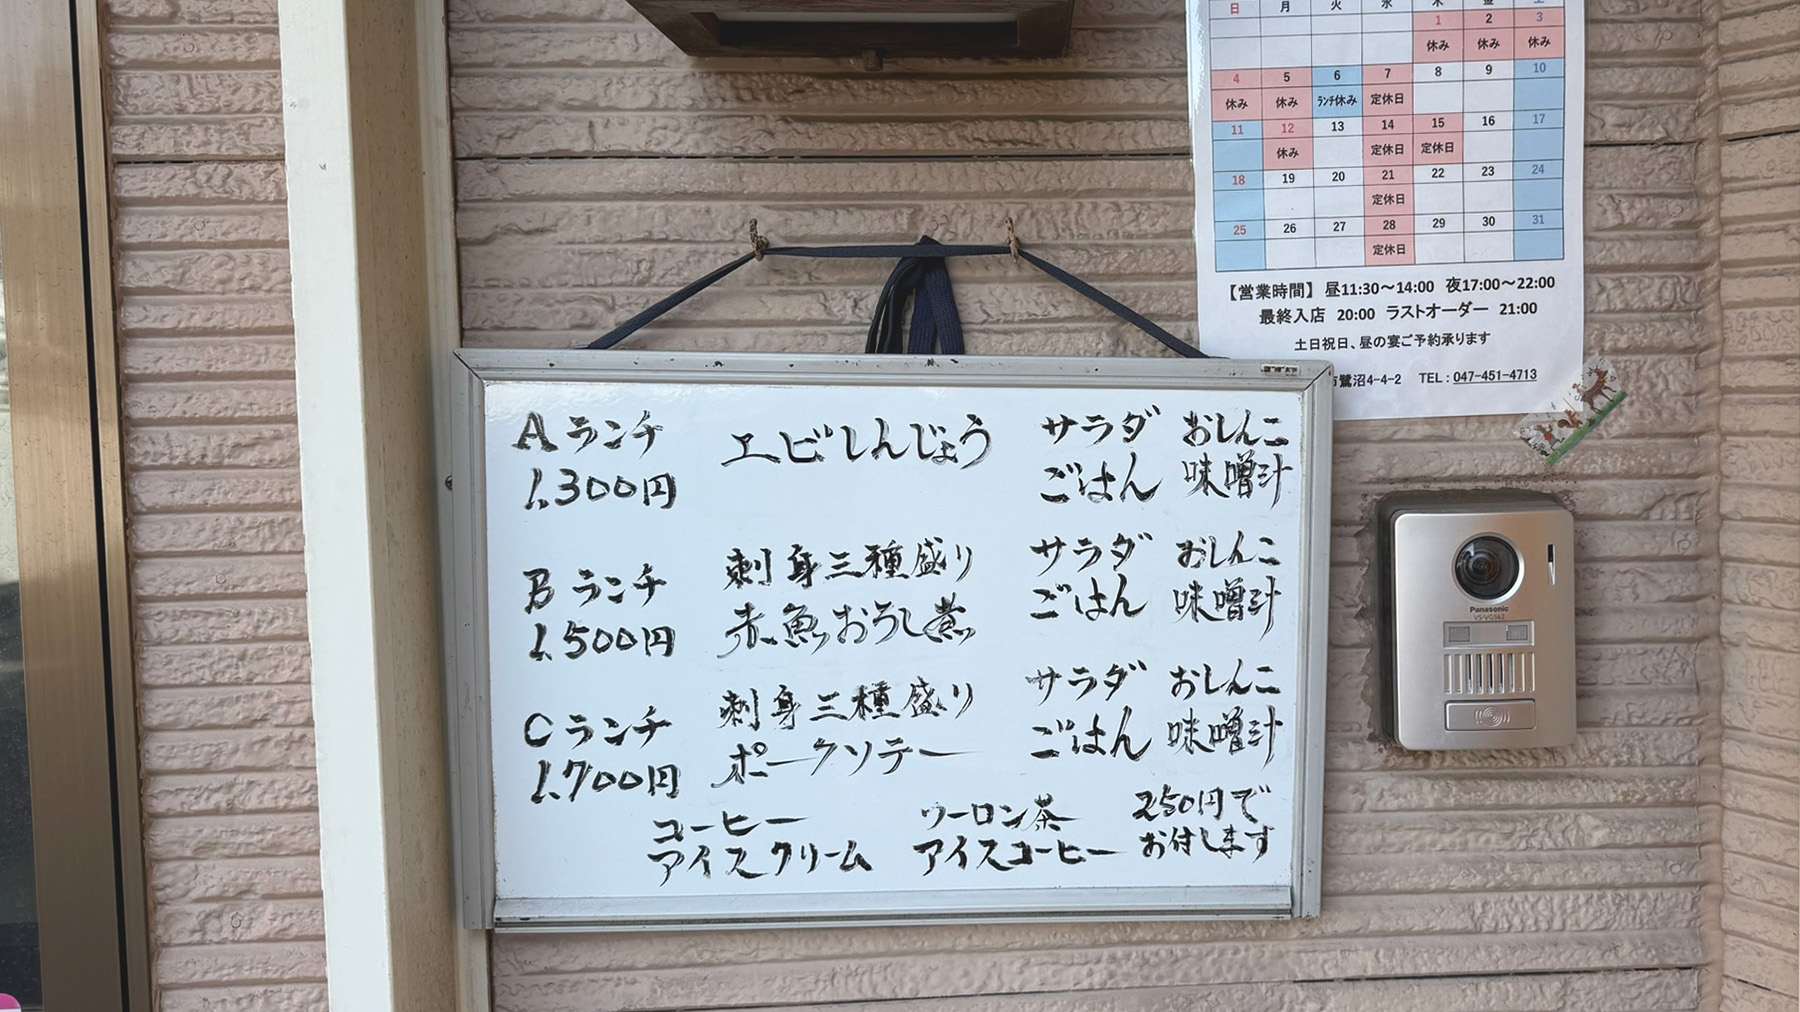 日 月 火 水 木 金 土
1 2 3
休み 休み 休み
4 5 6 7 8 9 10
休み 休み ﾗﾝﾁ休み 定休日
11 12 13 14 15 16 17
休み 定休日 定休日
18 19 20 21 22 23 24
定休日
25 26 27 28 29 30 31
定休日
【営業時間】 昼11:30～14:00 夜17:00～22:00
最終入店 20:00 ラストオーダー 21:00
土日祝日、昼の宴ご予約承ります
市鷺沼4-4-2 TEL：047-451-4713
Aランチ エビしんじょう サラダ おしんこ
1,300円 ごはん 味噌汁
Bランチ 刺身三種盛り サラダ おしんこ
1,500円 赤魚おろし煮 ごはん 味噌汁
Cランチ 刺身三種盛り サラダ おしんこ
1,700円 ポークソテー ごはん 味噌汁
コーヒー ウーロン茶 250円で
アイスクリーム アイスコーヒー お付します
Panasonic